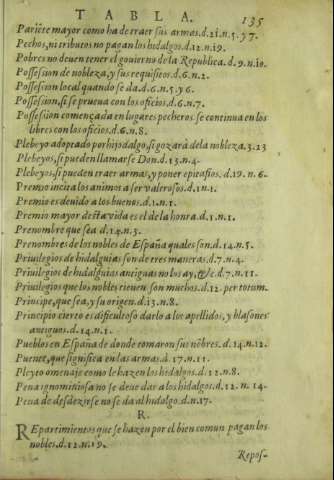 TABLA. 135
Pariẽte mayor como ha de traer sus armas.d.21.n.5.y 7.
Pechos, ni tributos no pagan los hidalgos.d.12.n.19.
Pobres no deuen tener el gouierno de la Republica.d.9.n.10.
Possession de nobleza, y sus requisitos.d.6.n.2.
Possession local quando se da.d.6.n.5.y 6.
Possession, si se prueua con los oficios.d.6.n.7.
Possession començada en lugares pecheros se continua en los
libres con los oficios.d.6.n.8.
Plebeyo adoptado por hijodalgo, si gozará de la nobleza.3.23
Plebeyos, si pueden llamarse Don.d.13.n.4.
Plebeyos, si pueden traer armas, y poner epitafios.d.19.n.6.
Premio incita los animos a ser valerosos.d.1.n.1.
Premio es deuido a los buenos.d.1.n.1.
Premio mayor desta vida es el de la honra.d.1.n.1.
Prenombre que sea d.14.n.3.
Prenombres de los nobles de España quales son.d.14.n.5.
Priuilegios de hidalguias son de tres maneras.d.7.n.4.
Priuilegios de hidalguias antiguas no los ay, &c.d.7.n.11.
Priuilegios que los nobles tienen son muchos.d.12.per totum.
Principe, que sea, y su origen.d.13.n.8.
Principio cierto es dificultoso darlo a los apellidos, y blasones
antiguos.d.14.n.1.
Pueblos en España de donde tomaron sus nõbres.d.14.n.12.
Puente, que significa en las armas.d.17.n.11.
Pleyto omenaje como le hazen los hidalgos.d.12.n.8.
Pena ignominiosa no se deue dar a los hidalgos.d.12.n.14.
Pena de desdezirse no se da al hidalgo.d.n.17.
R.
Repartimientos que se hazen por el bien comun pagan los
nobles.d.12.n.19.
Repos-